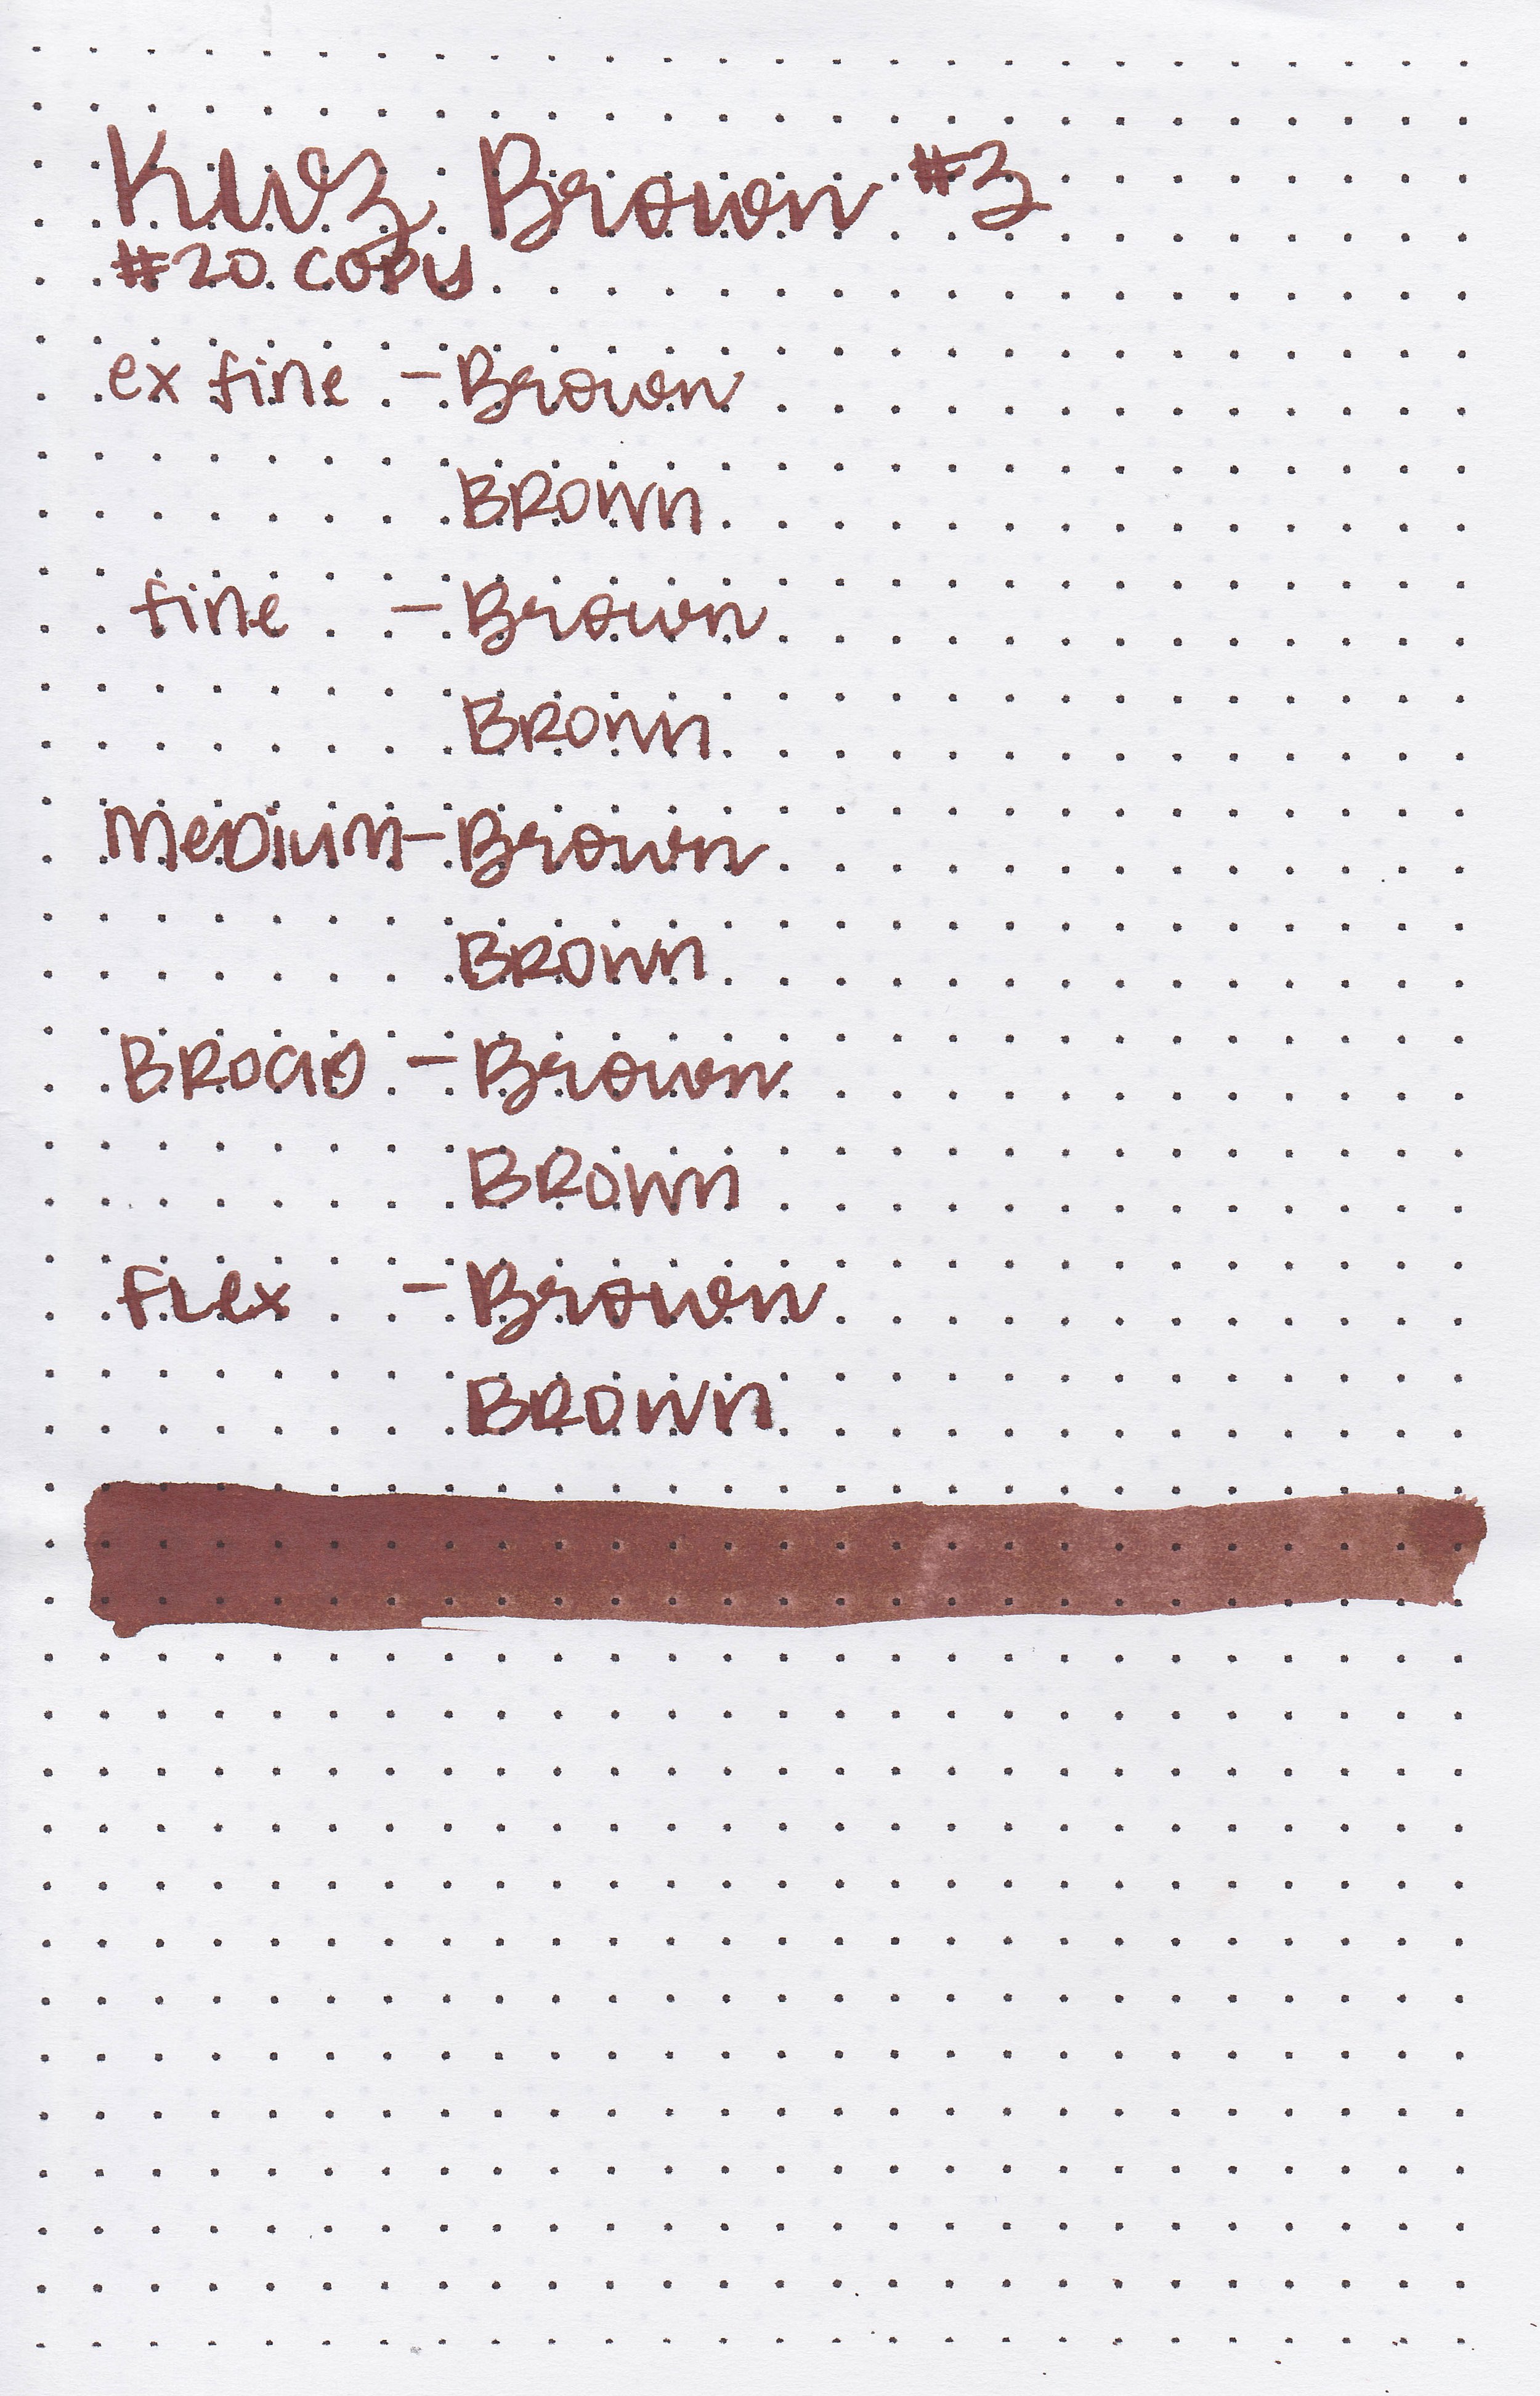 KWZ Brown #3
#20 copy
ex fine - Brown
BROWN
fine - Brown
BROWN
Medium - Brown
BROWN
BROAD - Brown
BROWN
FLex - Brown
BROWN